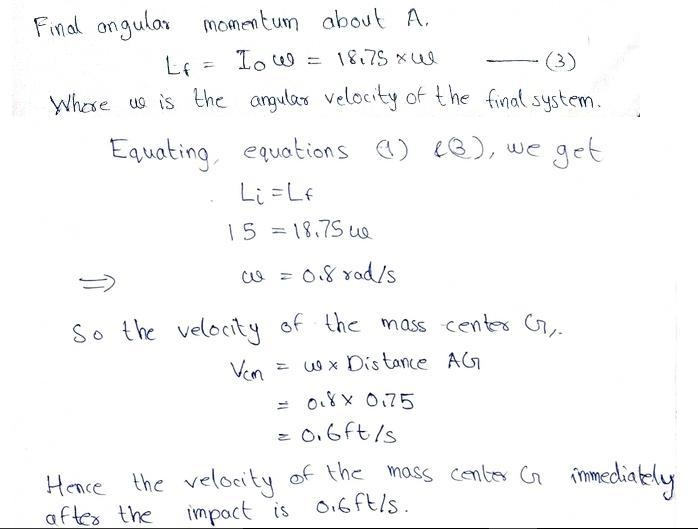 Final angular momentum about A.
Lf = I₀ω = 18.75 × ω —— (3)
Where ω is the angular velocity of the final system.
Equating, equations (1) & (3), we get
Li = Lf
15 = 18.75 ω
⇒ ω = 0.8 rad/s
So the velocity of the mass center G,.
Vcm = ω × Distance AG
= 0.8 × 0.75
= 0.6 ft/s
Hence the velocity of the mass center G immediately
after the impact is 0.6 ft/s.